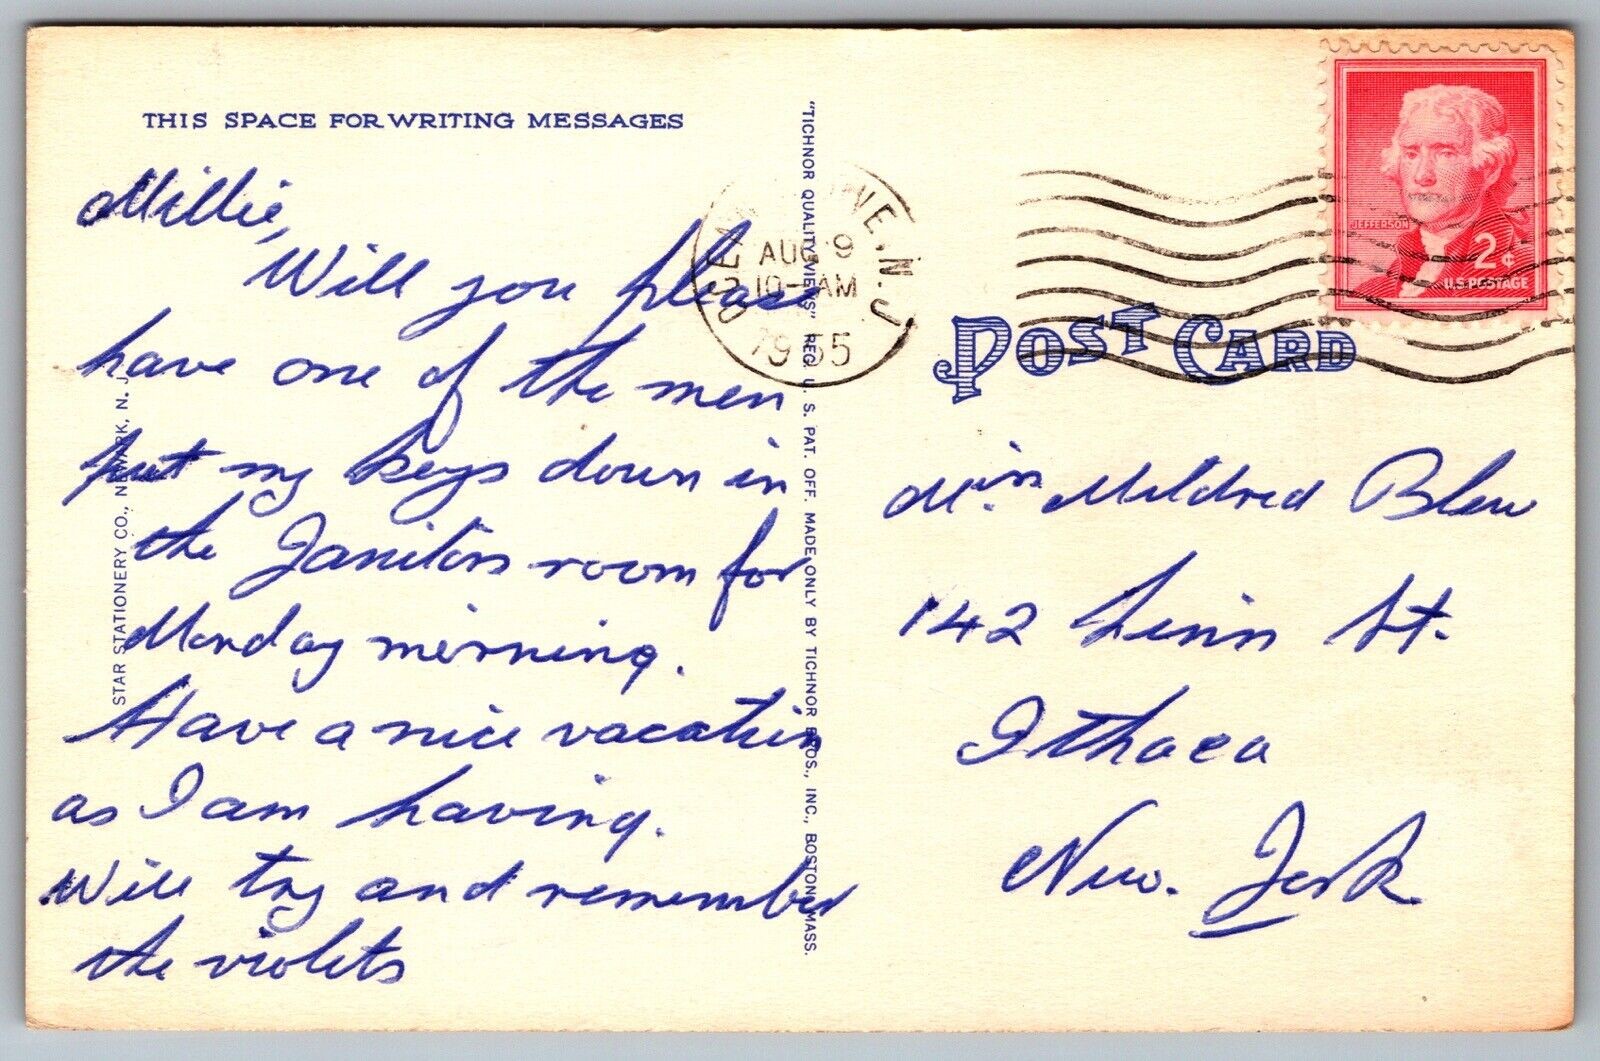 THIS SPACE FOR WRITING MESSAGES
Millie,
Will you please
have one of the men
put my keys down in
the Janitors room for
Monday morning.
Have a nice vacation
as I am having.
Will try and remember
the violets
STAR STATIONERY CO., NEWARK, N. J.
"TICHNOR QUALITY VIEWS" REG. U. S. PAT. OFF. MADE ONLY BY TICHNOR BROS., INC., BOSTON, MASS.
N.J.
AUG 9
10-AM
1955
JEFFERSON
2¢
U.S. POSTAGE
POST CARD
Miss Mildred Blew
142 Linn St.
Ithaca
New. York